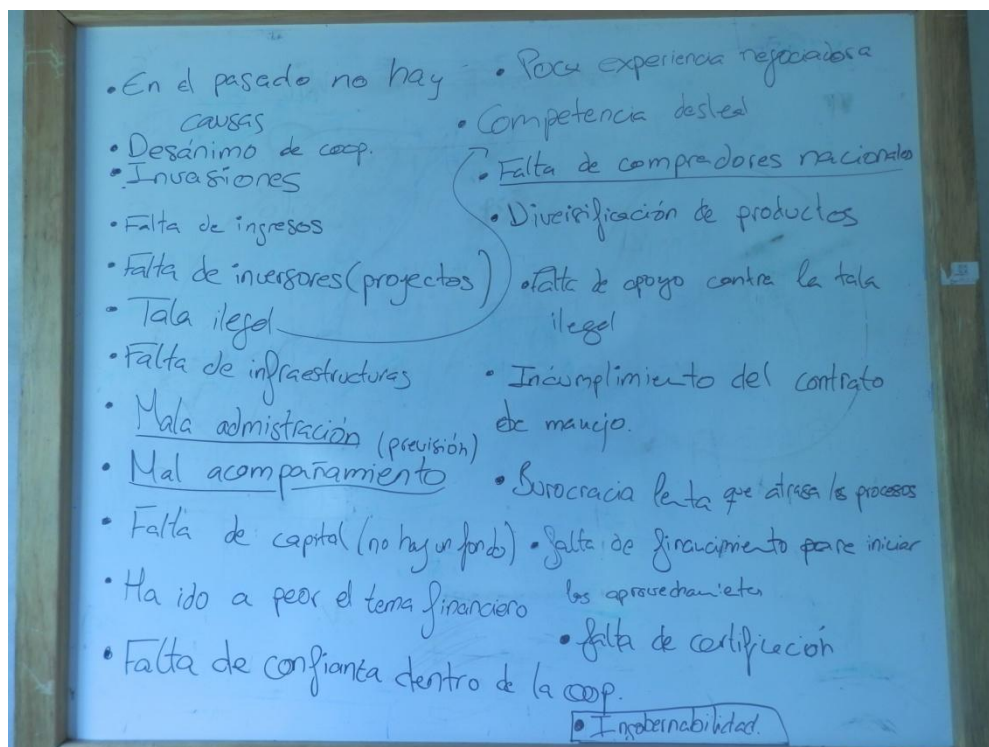 • En el pasado no hay
causas
• Desánimo de coop.
• Invasiones
• Falta de ingresos
• Falta de inversores (proyectos)
• Tala ilegal
• Falta de infraestructuras
• Mala admistración (previsión)
• Mal acompañamiento
• Falta de capital (no hay un fondo)
• Ha ido a peor el tema financiero
• Falta de confianta dentro de la coop.
• Poca experiencia negociadora
• Competencia desleal
• Falta de compradores nacionales
• Diversificación de productos
• falta de apoyo contra la tala
ilegal
• Incumplimiento del contrato
de manejo.
• Burocracia lenta que atrasa los procesos
• falta de financimiento para iniciar
los aprovechamientos
• falta de certificación
• Ingobernabilidad.